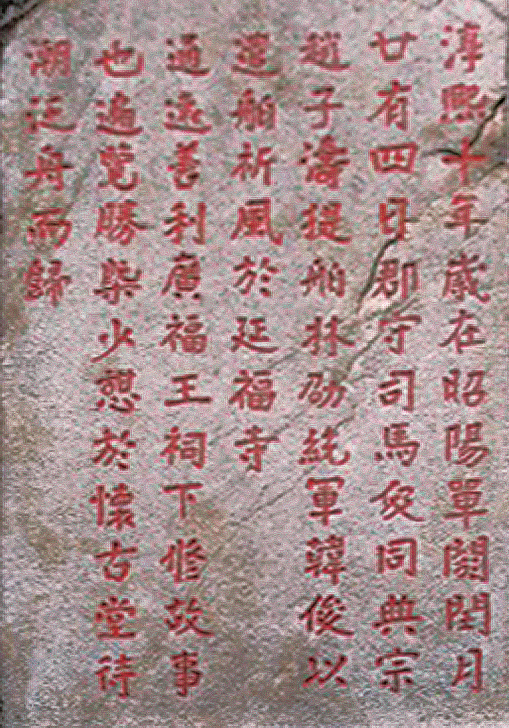 淳熙十年歲在昭陽單閼閏月
廿有四日郡守司馬伋同典宗
趙子濤提舶林劭統軍韓俊以
遣舶祈風於延福寺
通遠善利廣福王祠下修故事
也遍覽勝槩少憇於懷古堂待
潮泛舟而歸